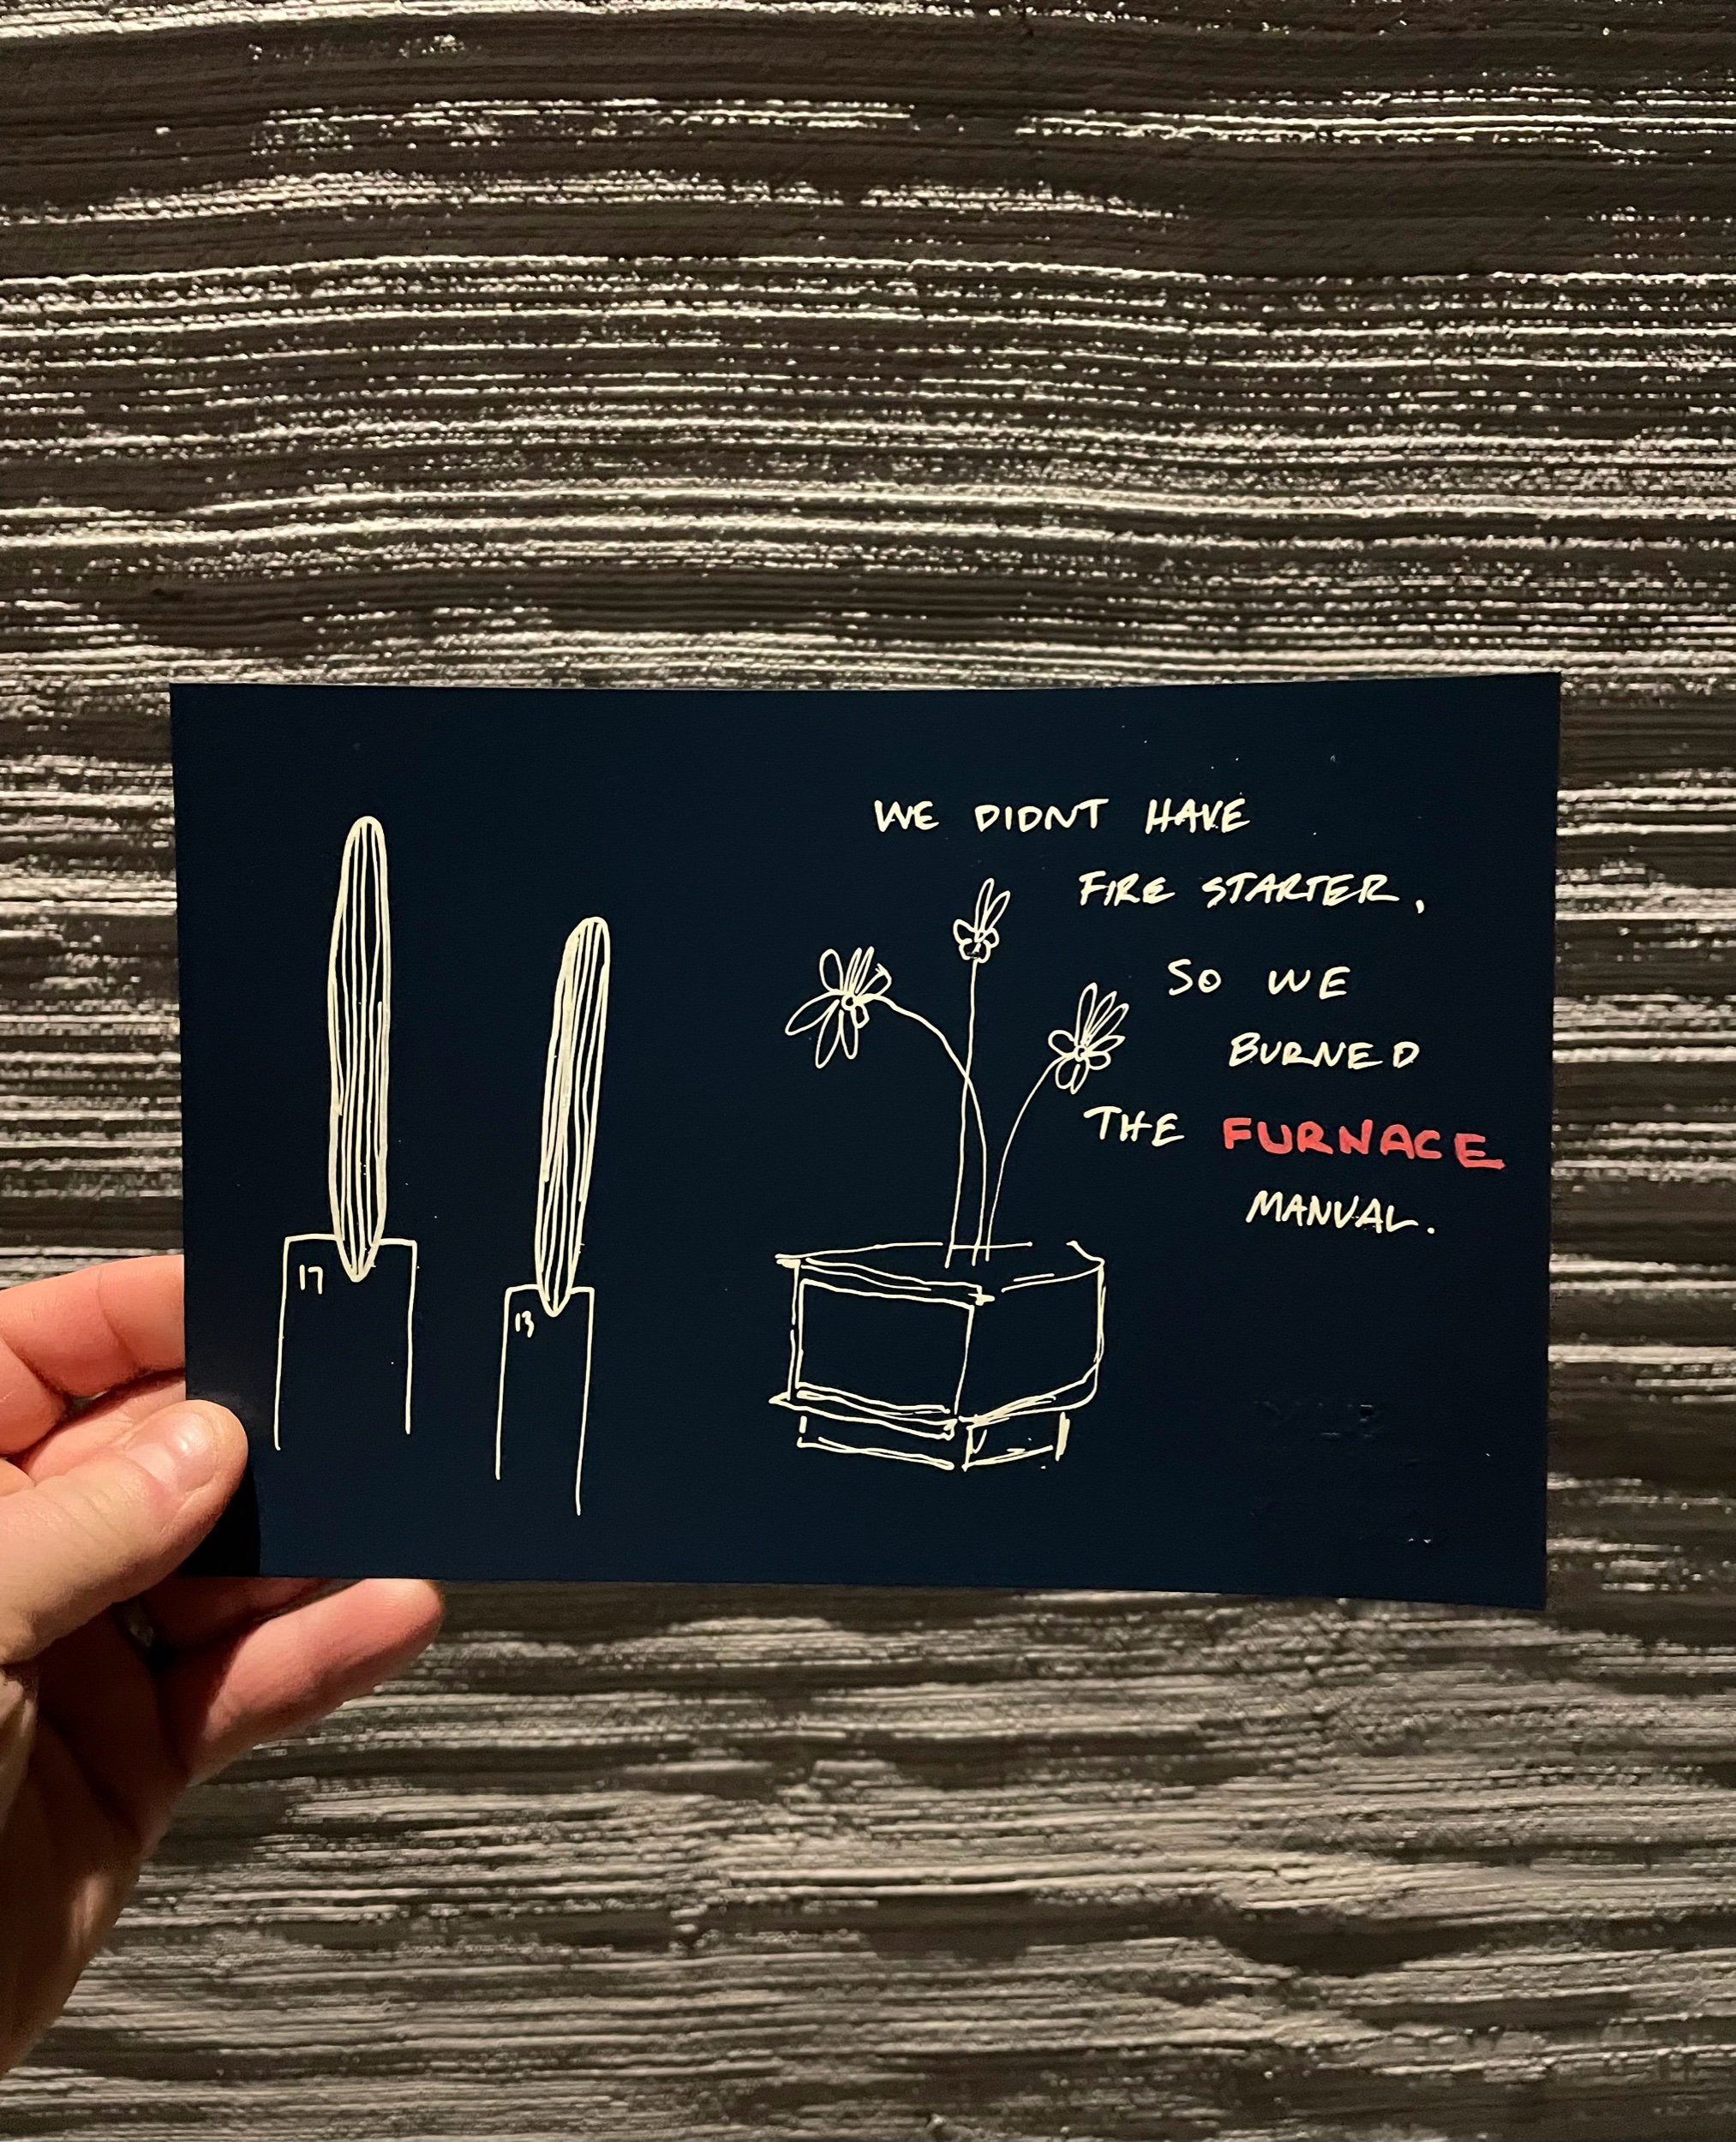 WE DIDNT HAVE
FIRE STARTER,
SO WE
BURNED
THE FURNACE
MANUAL.
17
13